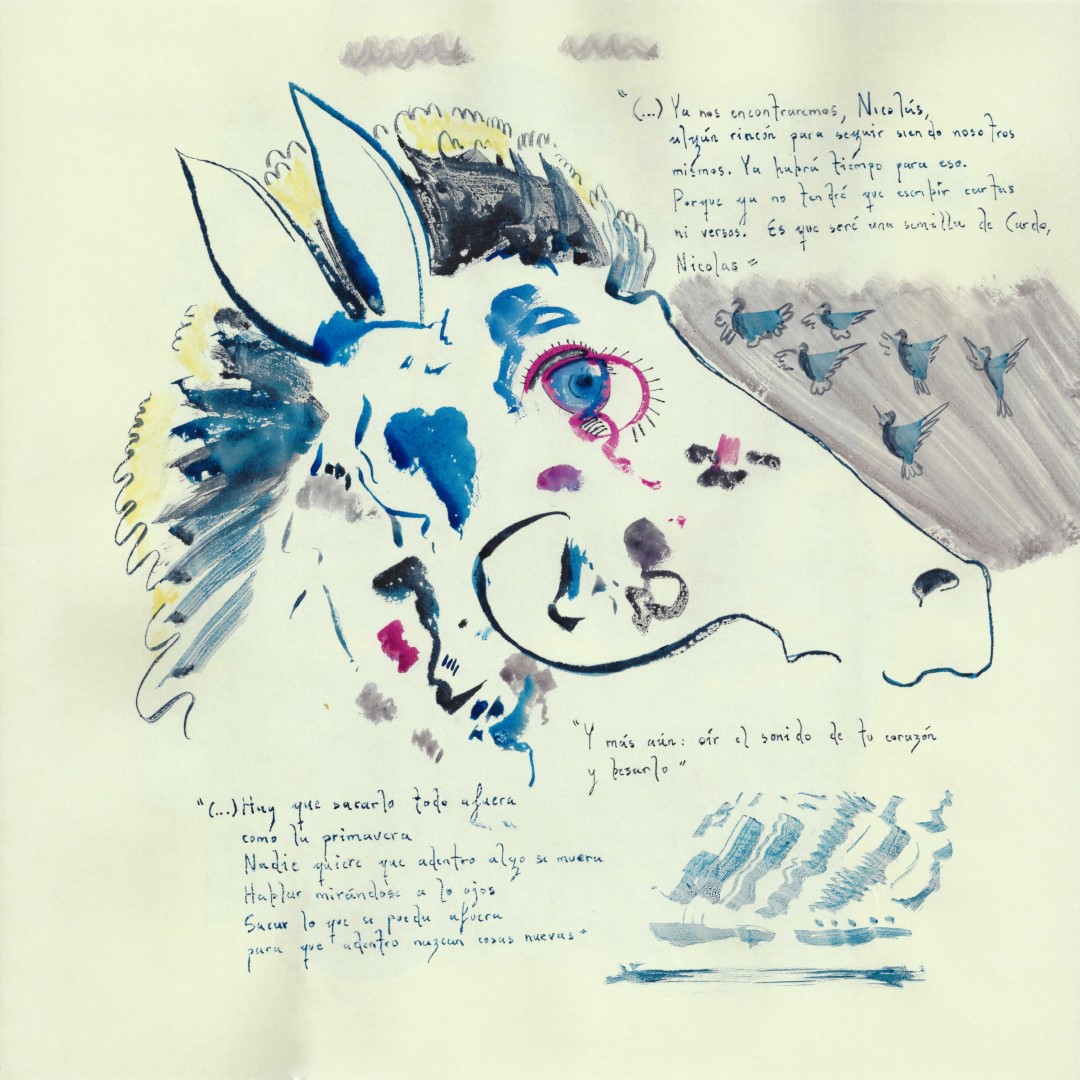 "(...) Ya nos encontraremos, Nicolás,
algún rincón para seguir siendo nosotros
mismos. Ya habrá tiempo para eso.
Porque ya no tendré que escribir cartas
ni versos. Es que seré una semilla de Cardo,
Nicolas"
"Y más aún: oír el sonido de tu corazón
y besarlo"
"(...) Hay que sacarlo todo afuera
como la primavera
Nadie quiere que adentro algo se muera
Hablar mirándose a lo ojos
Sacar lo que se pueda afuera
para que adentro nazcan cosas nuevas"